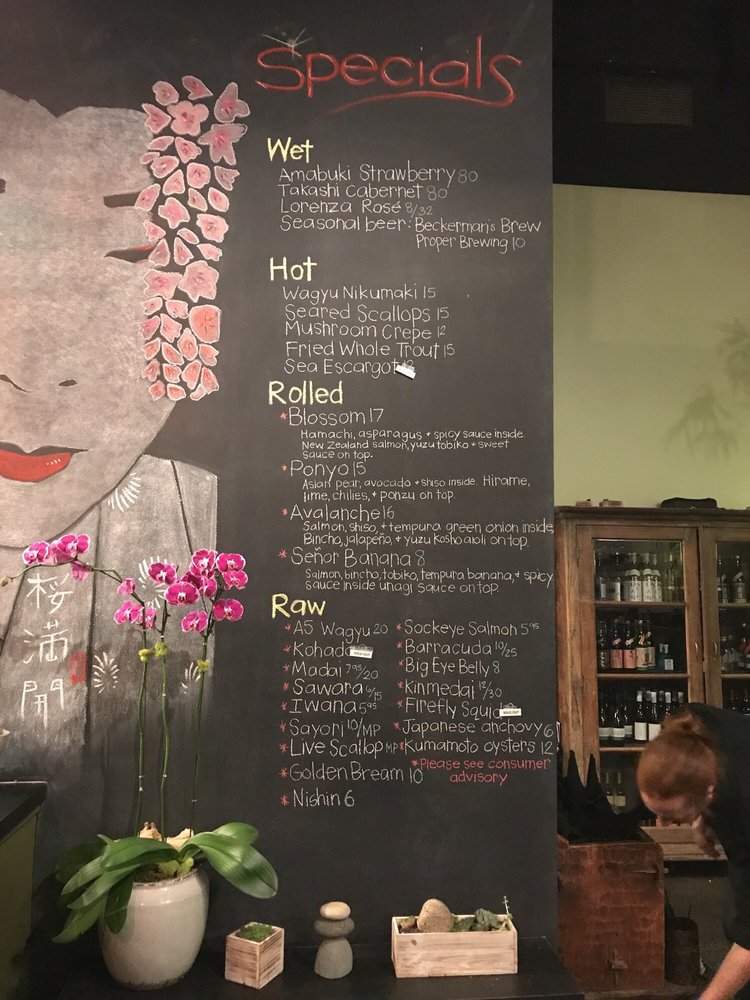 Specials
Wet
Amabuki Strawberry 80
Takashi Cabernet 80
Lorenza Rosé 8/32
Seasonal beer: Beckerman's Brew
Proper Brewing 10
Hot
Wagyu Nikumaki 15
Seared Scallops 15
Mushroom Crepe 12
Fried Whole Trout 15
Sea Escargot
Rolled
*Blossom 17
Hamachi, asparagus + spicy sauce inside
New Zealand salmon, yuzu tobiko + sweet
sauce on top.
*Ponyo 15
Asian pear, avocado + shiso inside. Hirame,
lime, chilies, + ponzu on top.
*Avalanche 16
Salmon, shiso, + tempura green onion inside
Bincho, jalapeño, + yuzu kosho aoli on top.
*Señor Banana 8
Salmon, bincho, tobiko, tempura banana, + spicy
sauce inside unagi sauce on top.
Raw
*A5 Wagyu 20
*Kohada SOLD OUT
*Madai 7.95/20
*Sawara 6/15
*Iwana 5.95
*Sayori 10/MP
*Live Scallop MP
*Golden Bream 10
*Nishin 6
*Sockeye Salmon 5.95
*Barracuda 10/25
*Big Eye Belly 8
*Kinmedai 12/30
*Firefly Squid SOLD OUT
*Japanese anchovy 6
*Kumamoto oysters 12
*Please see consumer
advisory
桜満開